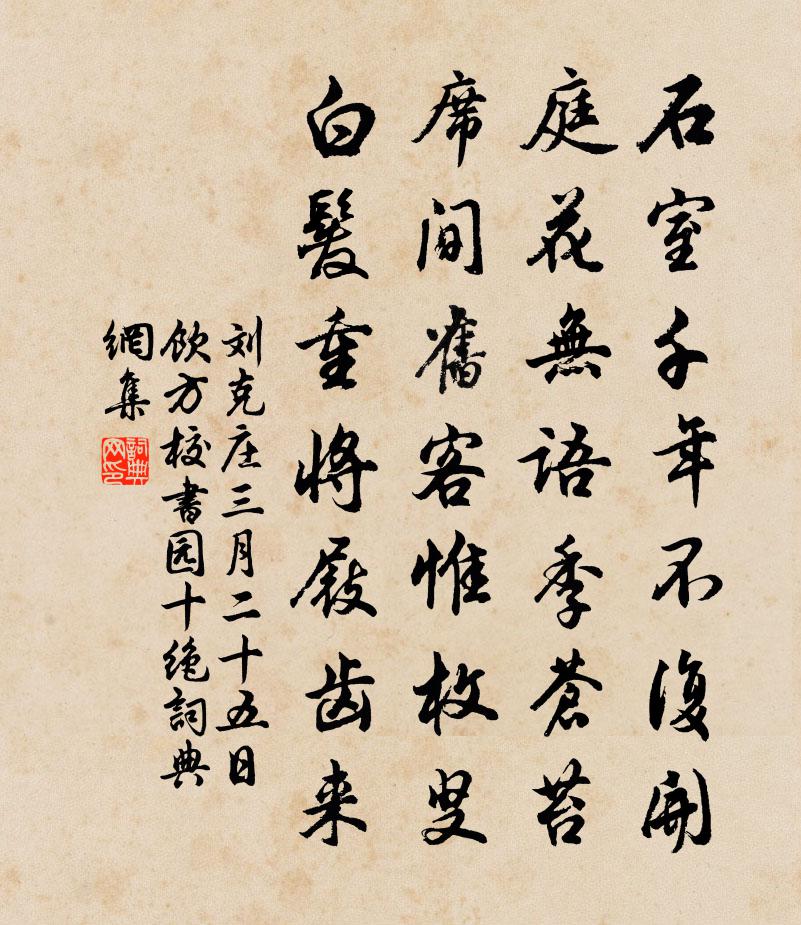 石室千年不復開
庭花無語季蒼苔
席間舊客惟枚叟
白髮重將屐齿来
刘克庄三月二十五日
飲方校書园十绝詞典
網集
詞典
网印